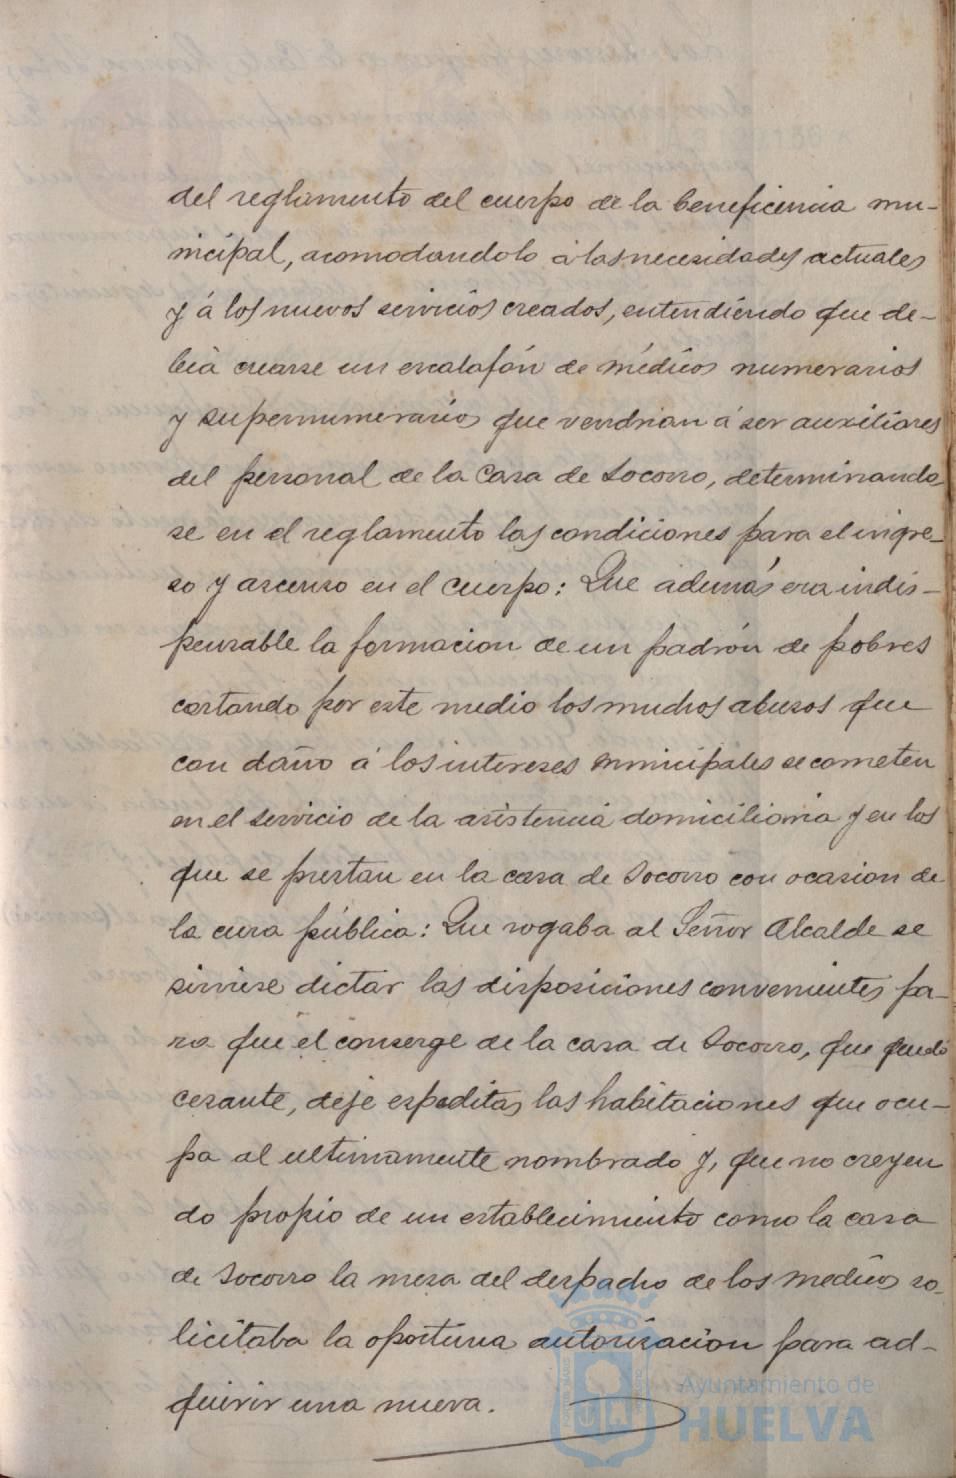 del reglamento del cuerpo de la beneficencia mu-
nicipal, acomodandolo á las necesidades actuales
y á los nuevos servicios creados, entendiendo que de-
bia crearse un escalafón de médicos numerarios
y supernumerarios que vendrian á ser auxiliares
del personal de la Casa de Socorro, determinando-
se en el reglamento las condiciones para el ingre-
so y ascenso en el cuerpo: Que además era indis-
pensable la formacion de un padrón de pobres
cortando por este medio los muchos abusos que
con daño á los intereses municipales se cometen
en el servicio de la asistencia domiciliaria y en los
que se prestan en la casa de Socorro con ocasion de
la cura pública: Que rogaba al Señor Alcalde se
sirviese dictar las disposiciones convenientes pa-
ra que el conserge de la casa de Socorro, que quedó
cesante, deje espeditas las habitaciones que ocu-
pa al ultimamente nombrado y, que no creyen
do propio de un establecimiento como la casa
de Socorro la mesa del despacho de los medicos so-
licitaba la oportuna autorizacion para ad-
quirir una nueva.
Ayuntamiento de
HUELVA